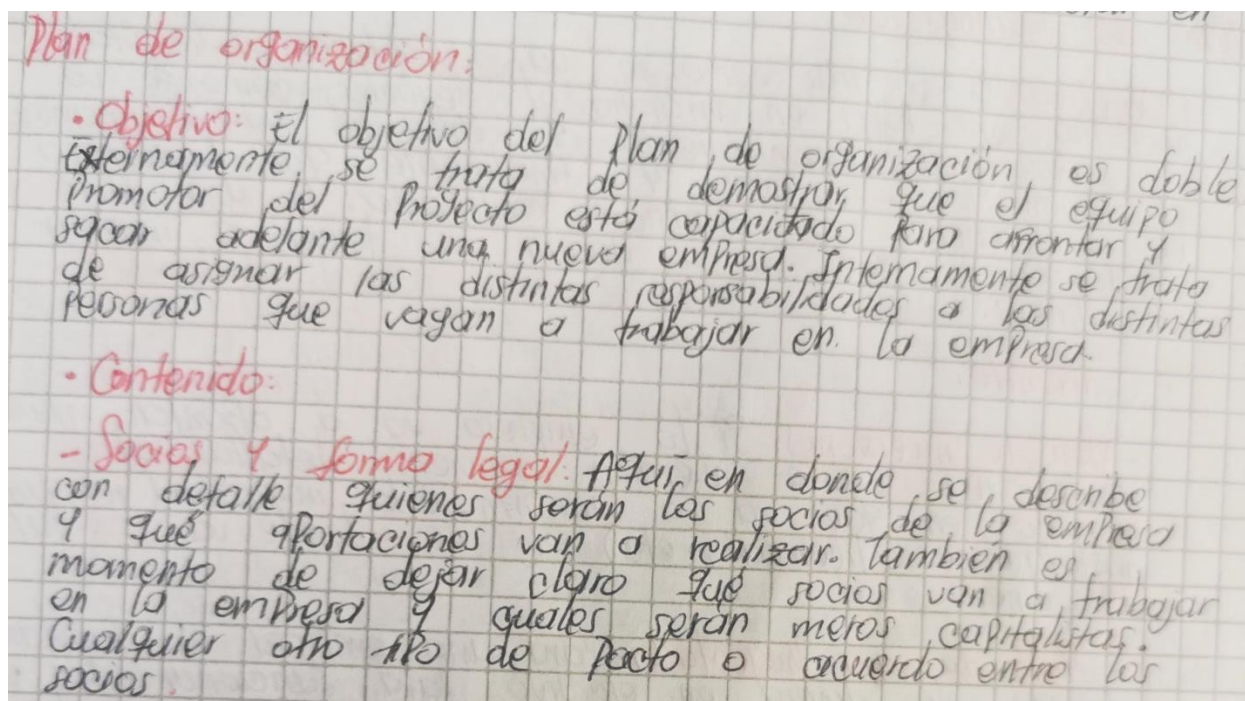 Plan de organización:
• Objetivo: El objetivo del Plan de organización es doble
Externamente, se trata de demostrar que el equipo
Promotor del Proyecto está capacitado para afrontar y
sacar adelante una nueva empresa. Internamente se trata
de asignar las distintas responsabilidades a las distintas
personas que vayan a trabajar en la empresa.
• Contenido:
- Socios y forma legal: Aquí, en donde se describe
con detalle quienes serán los socios de la empresa
y qué aportaciones van a realizar. También es
momento de dejar claro qué socios van a trabajar
en la empresa y quales serán meros capitalistas.
Cualquier otro tipo de Pacto o acuerdo entre los
socios.